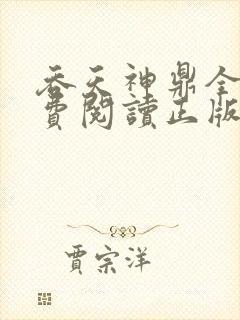 吞天神鼎全
費閱讀正版
賈宗洋